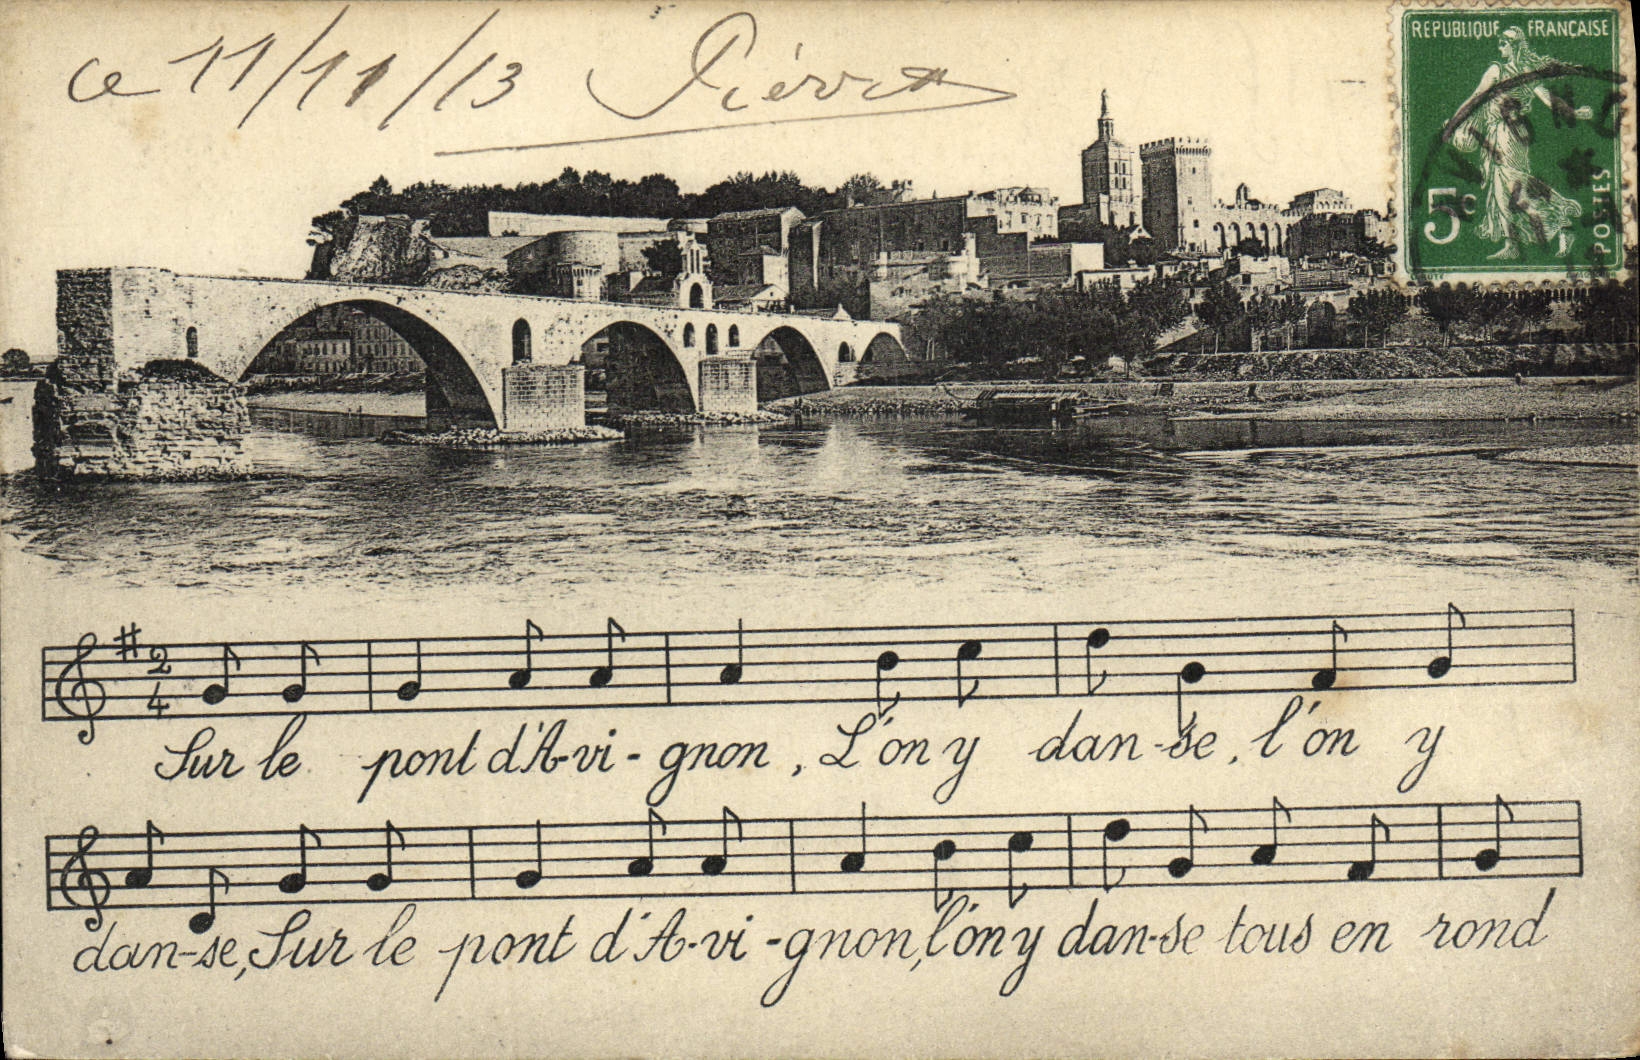 ce 11/11/13 Pierre
REPUBLIQUE FRANÇAISE
5c
POSTES
2
4
Sur le pont d'A-vi-gnon, L'on y dan-se, l'on y
dan-se, Sur le pont d'A-vi-gnon, l'on y dan-se tous en rond